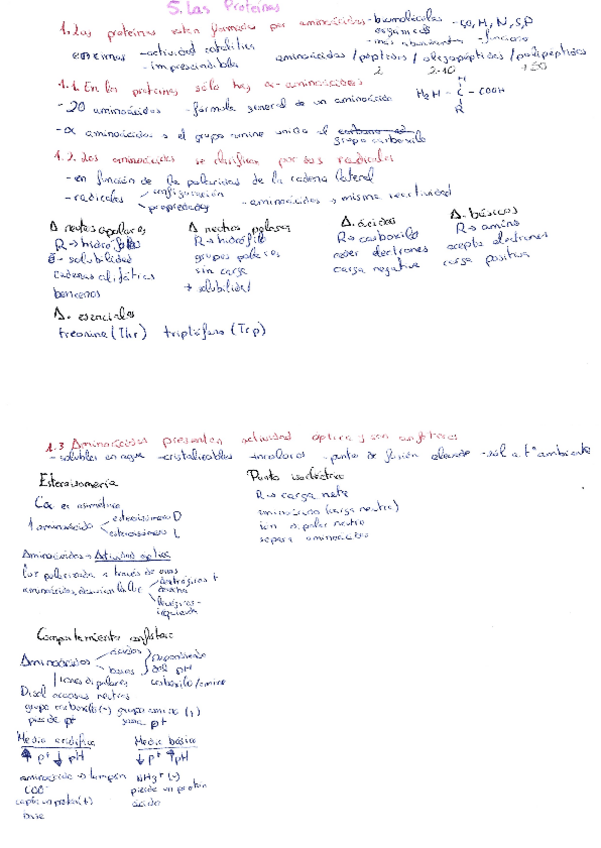 5. Las Proteínas
1. Las proteínas están formadas por aminoácidos - biomoléculas orgánicas - más abundantes - CO, H, N, S, P - función
enzimas - actividad catalítica - imprescindible
aminoácidos / péptidos / oligopéptidos / polipéptidos
2 2-10 +50
1.1. En las proteínas sólo hay α-aminoácidos
- 20 aminoácidos - fórmula general de un aminoácido
H
H2N - C - COOH
R
- α aminoácidos → el grupo amino unido al grupo carboxilo
1.2. Los aminoácidos se clasifican por sus radicales
- en función de la polaridad de la cadena lateral
- radicales configuración propiedades - aminoácidos → misma reactividad
A neutros apolares
R → hidrófobo
- solubilidad
cadenas alifáticas
bencenos
A neutros polares
R → hidrófilo
grupos polares
sin carga
+ solubilidad
A. ácidos
R → carboxilo
ceder electrones
carga negativa
A. básicos
R → amino
acepta electrones
carga positiva
A. esenciales
treonina (Thr) triptófano (Trp)
1.3 Aminoácidos presentan actividad óptica y son anfóteros
- solubles en agua - cristalizables - incoloros - punto de fusión elevado - sól a tª ambiente
Estereoisomería
Cα es asimétrico
1 aminoácido estereoisómero D
estereoisómero L
Aminoácidos → Actividad óptica
luz polarizada a través de
aminoácidos desvían la luz dextrógiras + derecha
levógiras - izquierda
Punto isoeléctrico
R → carga neta
aminoácido (carga neutra)
ion dipolar neutro
separa aminoácido
Comportamiento anfótero
Aminoácidos ácidos
bases dependiendo del pH
iones dipolares carboxilo/amino
Disol acuosas neutras
grupo carboxilo (-) grupo amino (+)
pierde p+ p+
Medio acidífico
↑ p+ ↓ pH
aminoácido → tampón
COO-
capta un protón (+)
base
Medio básico
↓ p+ ↑ pH
NH3+ (-)
pierde un protón
ácido